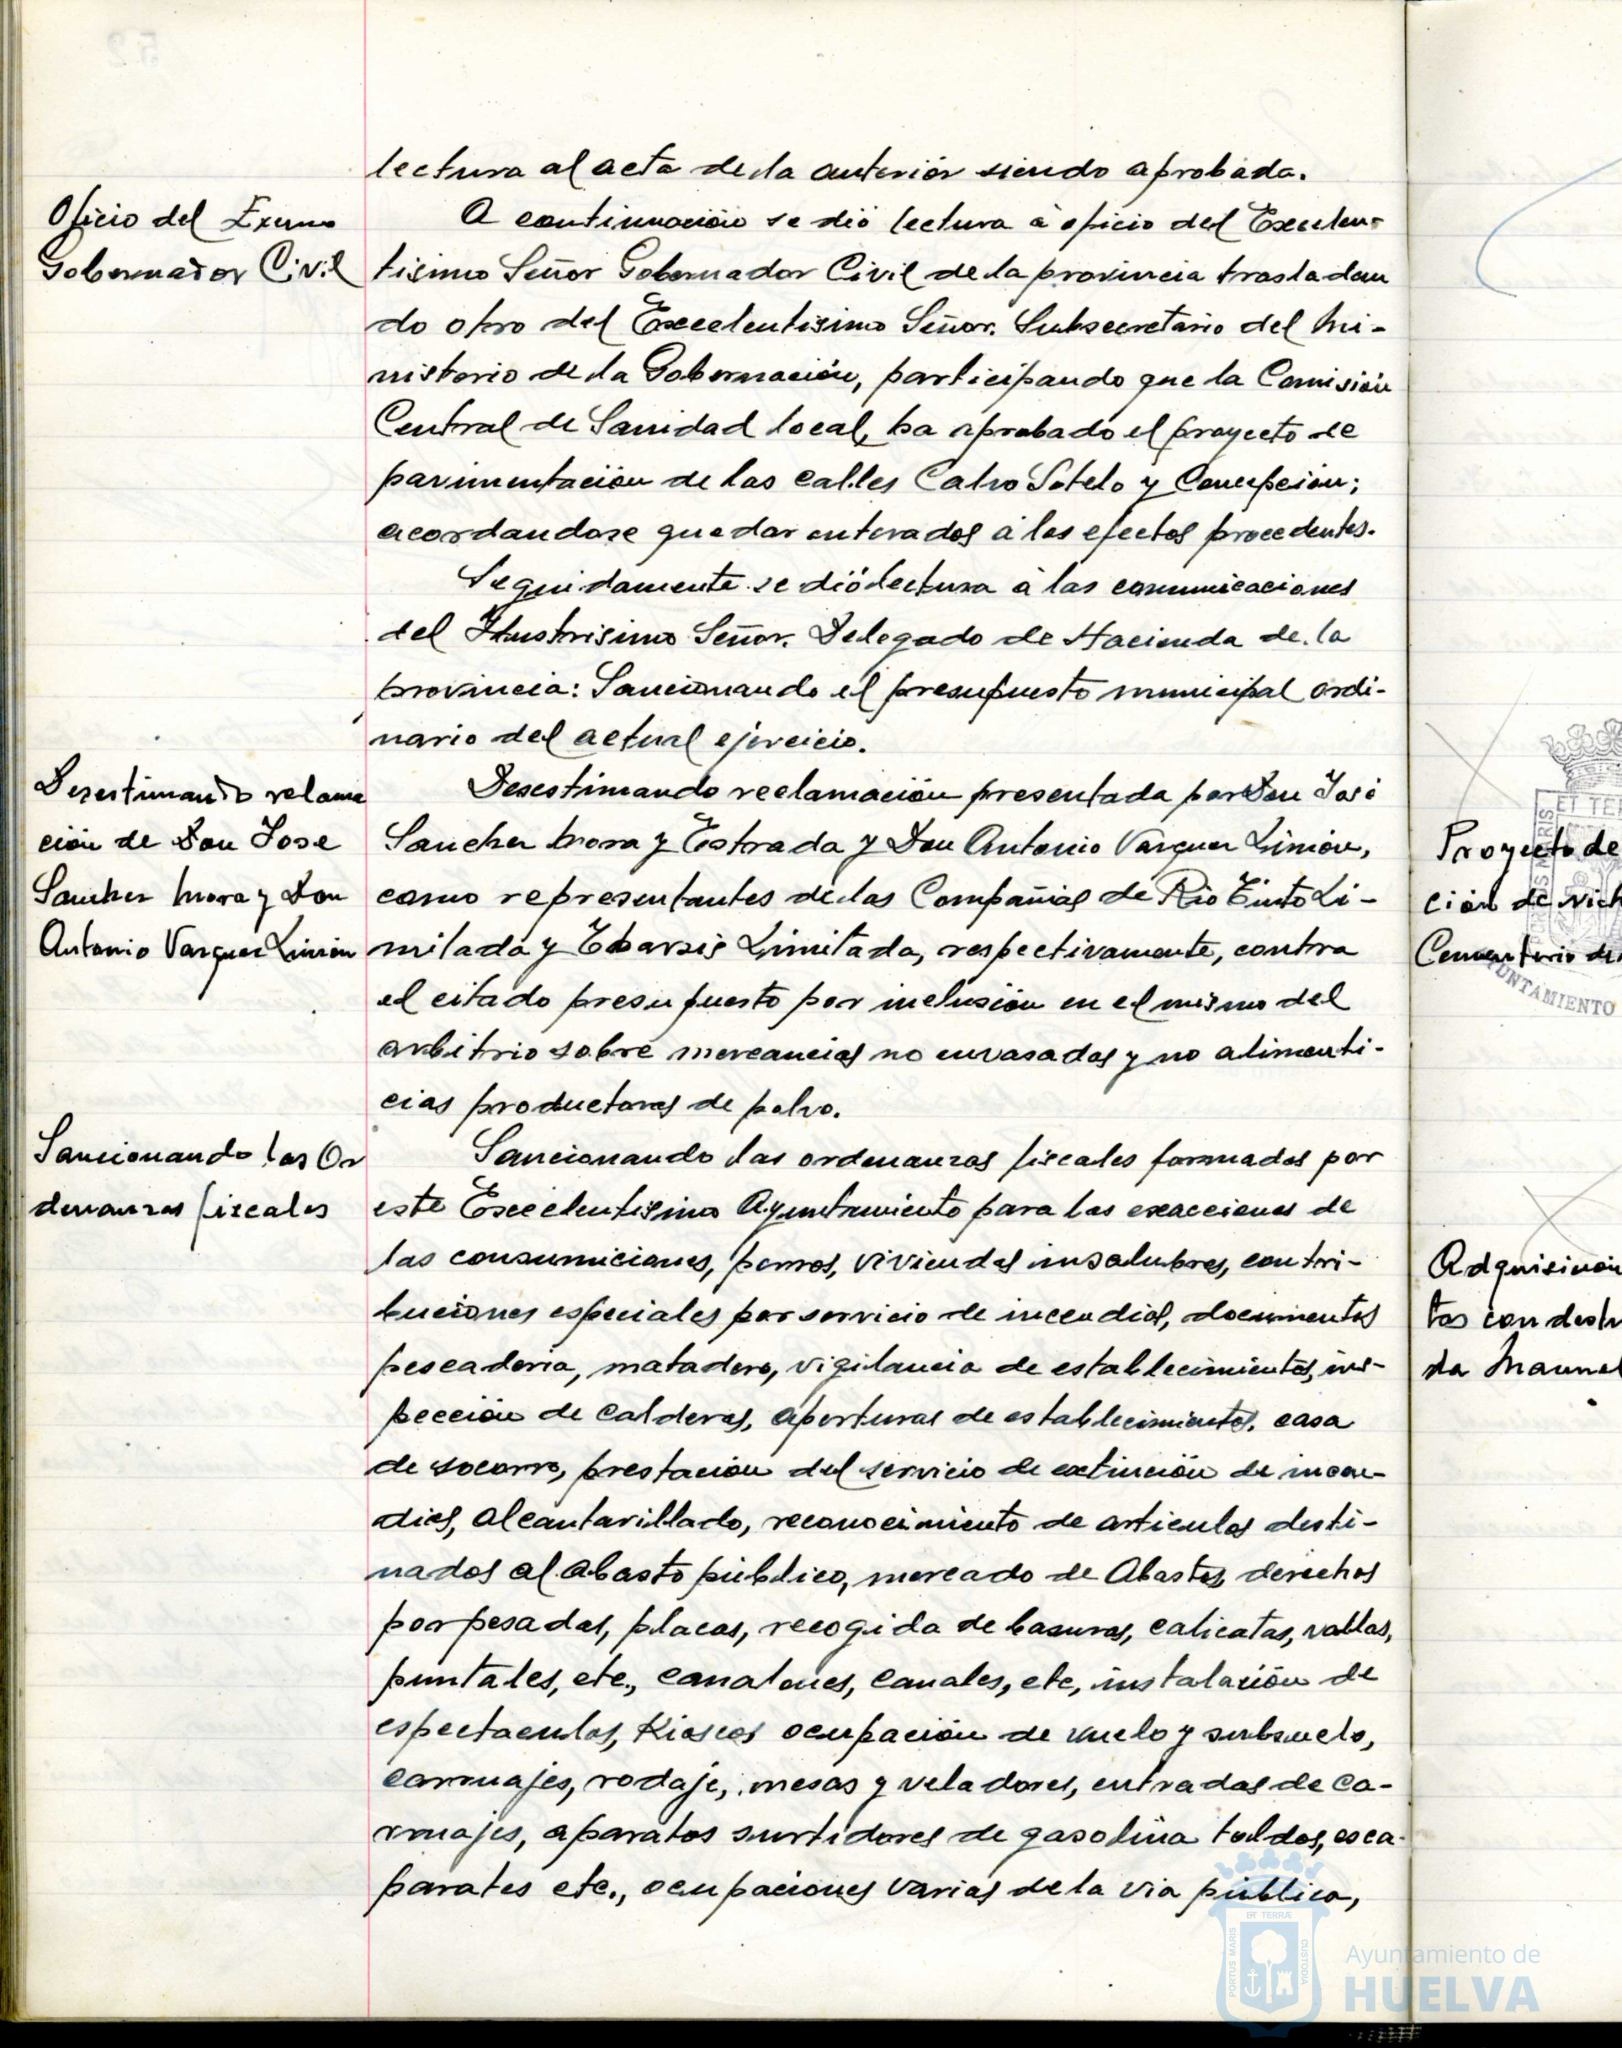 lectura al acta de la anterior siendo aprobada.
Oficio del Exmo
Gobernador Civil
A continuación se dió lectura á oficio del Excelen-
tisimo Señor Gobernador Civil de la provincia trasladan
do otro del Excelentisimo Señor. Subsecretario del Mi-
nisterio de la Gobernación, participando que la Comisión
Central de Sanidad local, ha aprobado el proyecto de
pavimentación de las calles Calvo Sotelo y Concepción;
acordandose quedar enterados á los efectos procedentes.
Seguidamente se dió lectura á las comunicaciones
del Ilustrisimo Señor. Delegado de Hacienda de la
provincia: Sancionando el presupuesto municipal ordi-
nario del actual ejercicio.
Desestimando reclama
ción de Don Jose
Sanchez Mora y Don
Antonio Vazquez Limón
Desestimando reclamación presentada por Don José
Sanchez Mora y Estrada y Don Antonio Vazquez Limón,
como representantes de las Compañias de Rio Tinto Li-
mitada y Tharsis Limitada, respectivamente, contra
el citado presupuesto por inclusión en el mismo del
arbitrio sobre mercancias no envasadas y no alimenti-
cias productoras de polvo.
Sancionando las Or
denanzas fiscales
Sancionando las ordenanzas fiscales formadas por
este Excelentisimo Ayuntamiento para las exacciones de
las consumiciones, perros, viviendas insalubres, contri-
buciones especiales por servicio de incendios, documentos
pescaderia, matadero, vigilancia de establecimientos, ins-
pección de calderas, aperturas de establecimientos, casa
de socorro, prestación del servicio de extinción de incen-
dios, alcantarillado, reconocimiento de articulos desti-
nados al abasto público, mercado de Abastos, derechos
por pesadas, placas, recogida de basuras, calicatas, vallas,
puntales, etc., canalones, canales, etc, instalación de
espectaculos, Kioscos ocupación de vuelo y subsuelo,
carruajes, rodaje, mesas y veladores, entradas de ca-
rruajes, aparatos surtidores de gasolina toldos, esca-
parates etc., ocupaciones varias de la via pública,
Proyecto de
ción de nich
Cementerio de
ET TER
AYUNTAMIENTO
Adquisición
tos con dest
da Manuel
PORTUS MARIS
ET TERRÆ
CUSTODIA
Ayuntamiento de
HUELVA